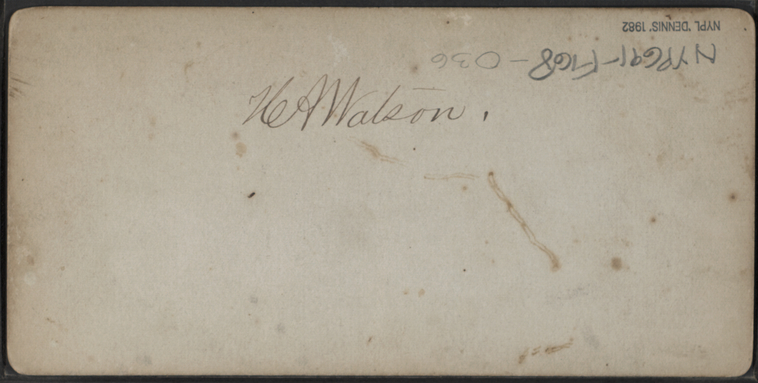 NYPL 'DENNIS', 1982
NYPG91-F168-036
H A Watson.